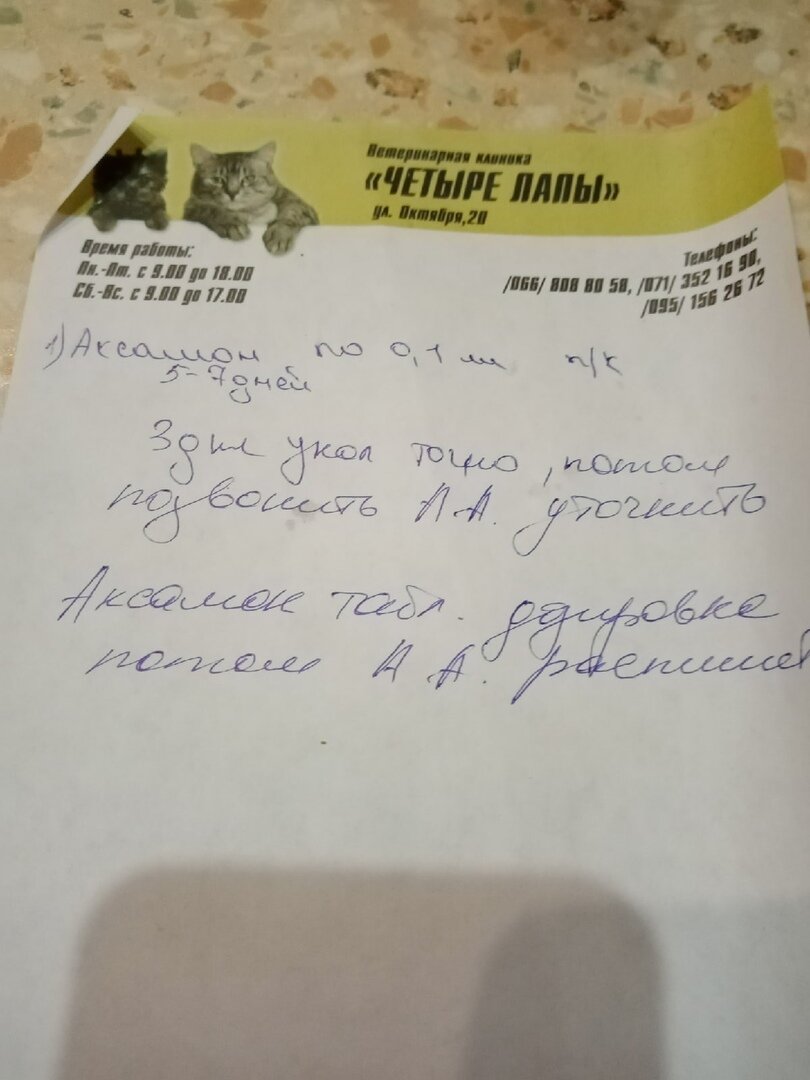 Ветеринарная клиника
«ЧЕТЫРЕ ЛАПЫ»
ул. Октября,20
Время работы:
Пн.-Пт. с 9.00 до 18.00
Сб.-Вс. с 9.00 до 17.00
Телефоны:
/066/ 808 80 58, /071/ 352 16 90,
/095/ 156 26 72
1) Аксамон по 0,1 мл п/к
5-7 дней
3 дня укол точно, потом
позвонить А.А. уточнить
Аксамон табл. дозировка
потом А.А. распишет